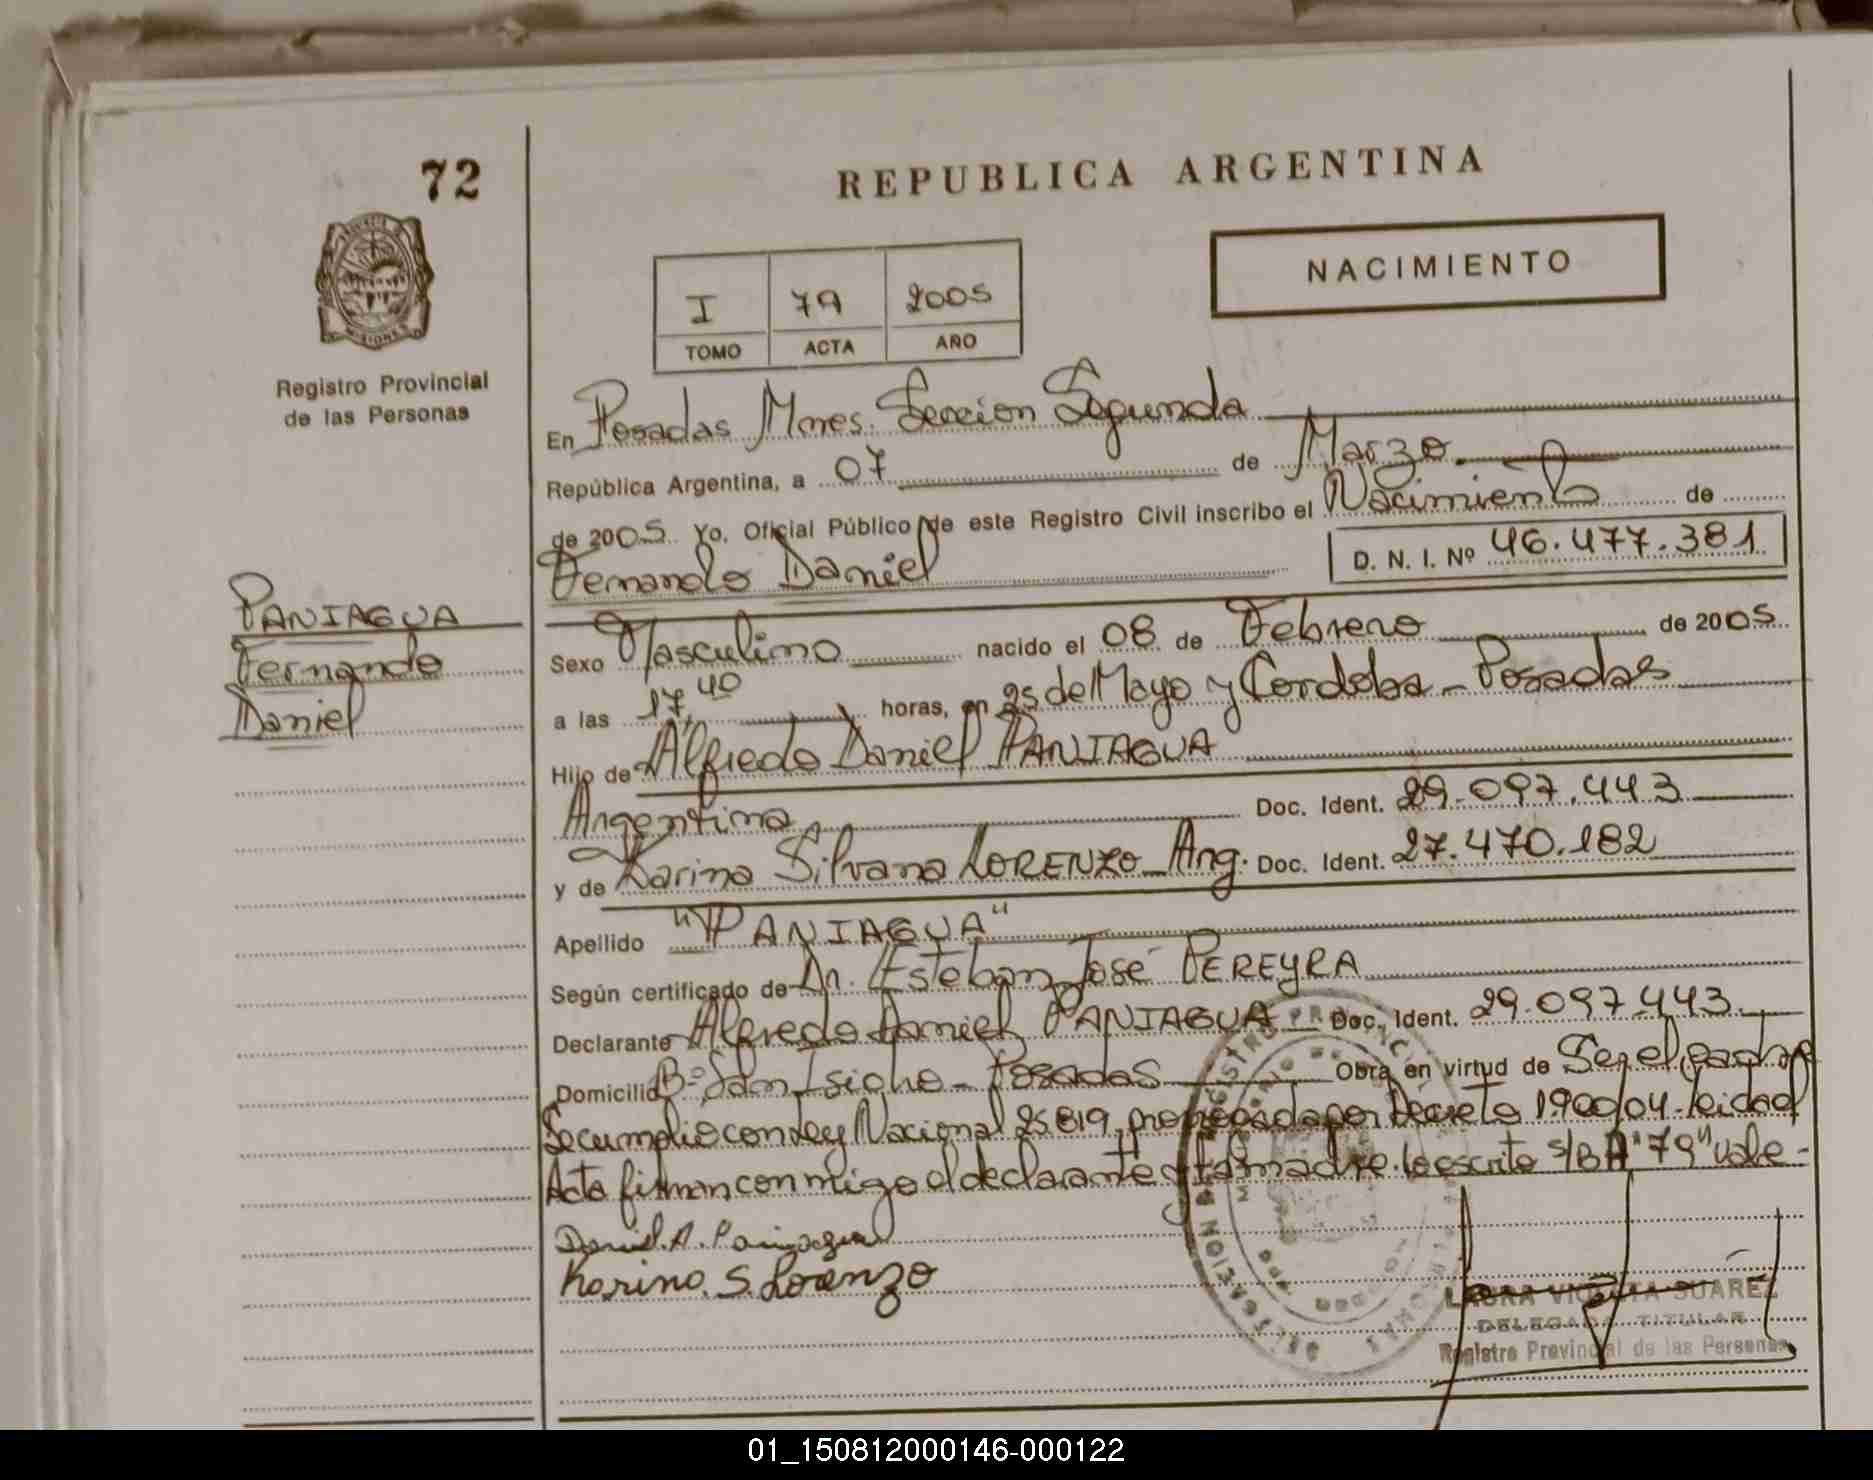 72
REPUBLICA ARGENTINA
NACIMIENTO
I 79 2005
TOMO ACTA AÑO
PROVINCIA DE MISIONES
Registro Provincial
de las Personas
En Posadas Mnes. Seccion Segunda
República Argentina, a 07 de Marzo.
de 2005 Yo, Oficial Público de este Registro Civil inscribo el Nacimiento de
Fernando Daniel D. N. I. Nº 46.477.381
PANIAGUA
Fernando
Daniel
Sexo Masculino nacido el 08 de Febrero de 2005
a las 17,40 horas, en 25 de Mayo y Cordoba - Posadas
Hijo de Alfredo Daniel PANIAGUA
Argentina Doc. Ident. 29.097.443
y de Karina Silvana LORENZO - Arg. Doc. Ident. 27.470.182
Apellido "PANIAGUA"
Según certificado de Dr. Esteban José PEREYRA
Declarante Alfredo Daniel PANIAGUA Doc. Ident. 29.097.443
Domicilio Bº San Isidro - Posadas Obra en virtud de Ser el padre
Se cumplio con Ley Nacional 25819, por Decreto 1.900/04. leida el
Acta firman conmigo el declarante y la madre. lo escrito s/B A "79" vale -
Daniel A. Paniagua
Karina. S. Lorenzo
LAURA SUAREZ
DELEGADA TITULAR
Registro Provincial de las Personas
01_150812000146-000122